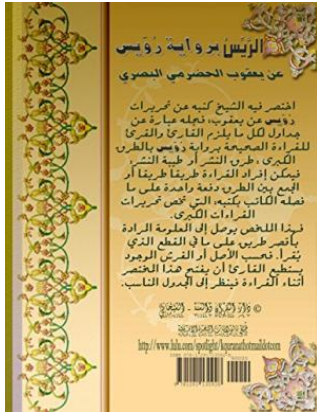 الرَيِّسُ برواية رُوَيس
عن يعقوب الحضرمي البصري
اختصر فيه الشيخ كتبه عن تحريرات
رُوَيس عن يعقوب، فجله عبارة عن
جداول لكل ما يلزم القارئ والمقرئ
للقراءة الصحيحة برواية رُوَيس بالطرق
الكبرى، طرق النشر أو طيبة النشر،
فيمكن إفراد القراءة طريقا طريقا أو
الجمع بين الطرق دفعة واحدة على ما
فصله الكاتب بكتبه، التي تخص تحريرات
القراءات الكبرى.
فهذا الملخص يوصل إلى المعلومة الرادة
بأقصر طريق على ما في المقطع الذي
يُقرأ. فحسب الأصل أو الفرش الموجود
يستطيع القارئ أن يفتح هذا المختصر
أثناء القراءة فينظر إلى الجدول المناسب.